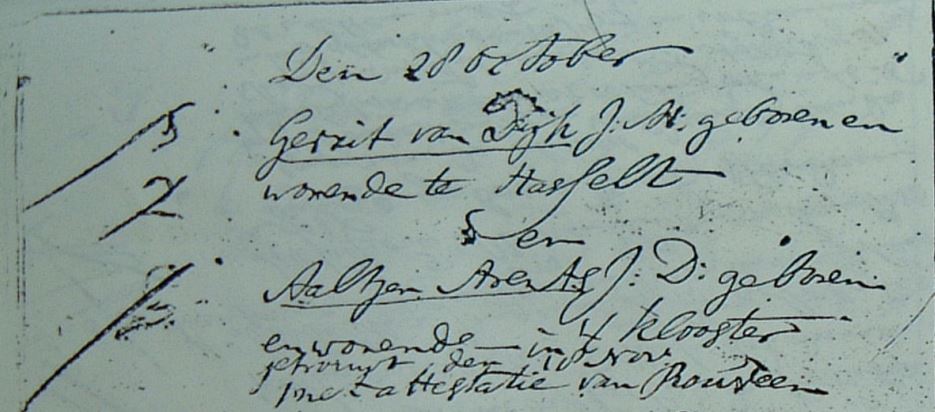 Den 28 October
Gerrit van Dijk J: M: geboren en
wonende te Hasselt
en
Aaltjen Arents J: D: geboren
en wonende in 't klooster
getrouwt den 18 Nov
met attestatie van Rouveen